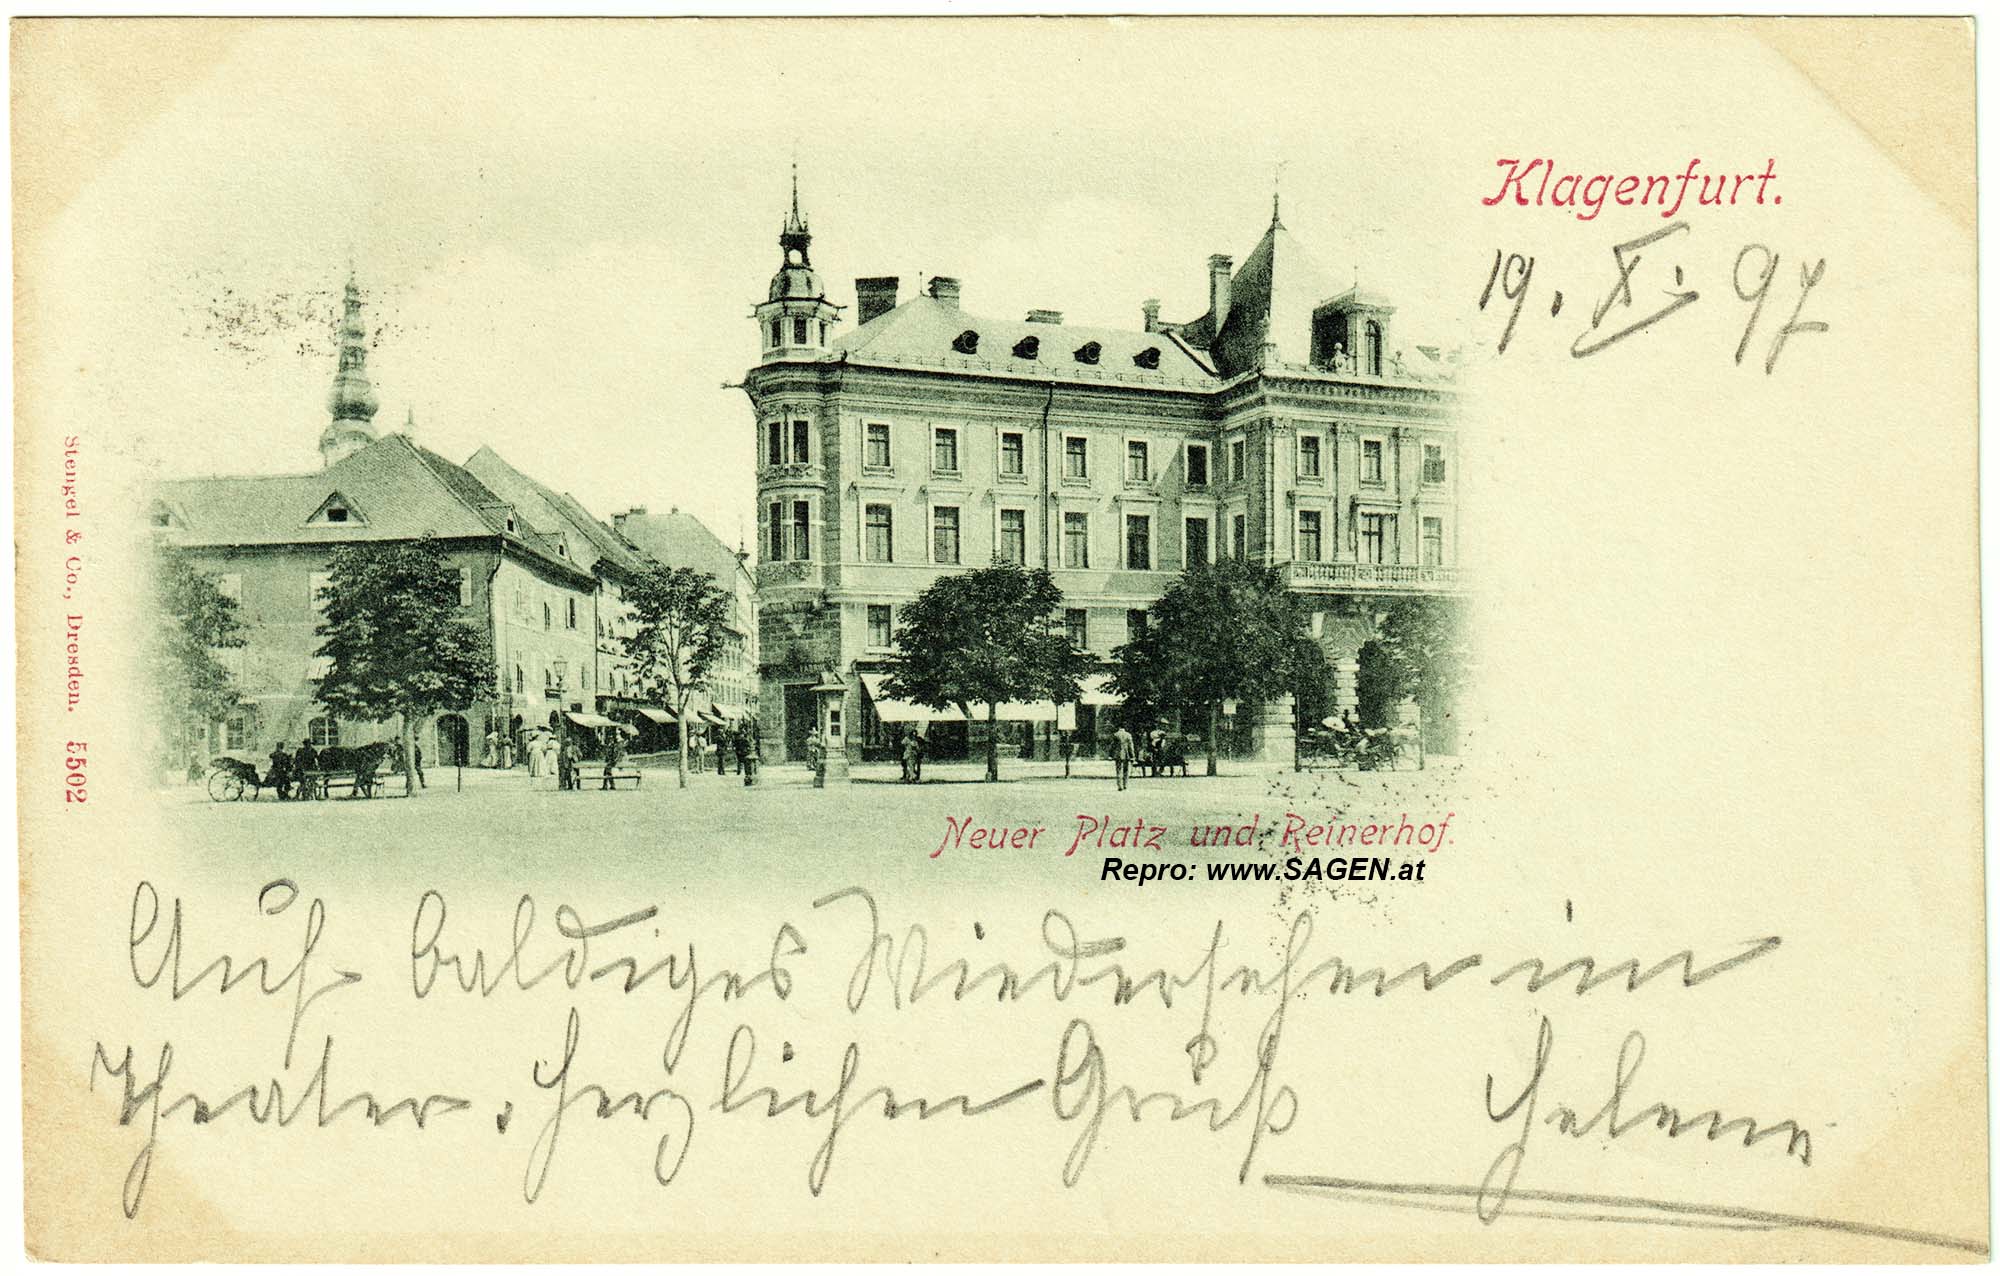 Klagenfurt.
19. X. 97
Stengel & Co., Dresden. 5502
Neuer Platz und Reinerhof.
Repro: www.SAGEN.at
Auf baldiges Wiedersehen im
Theater. Herzlichen Gruß Helene